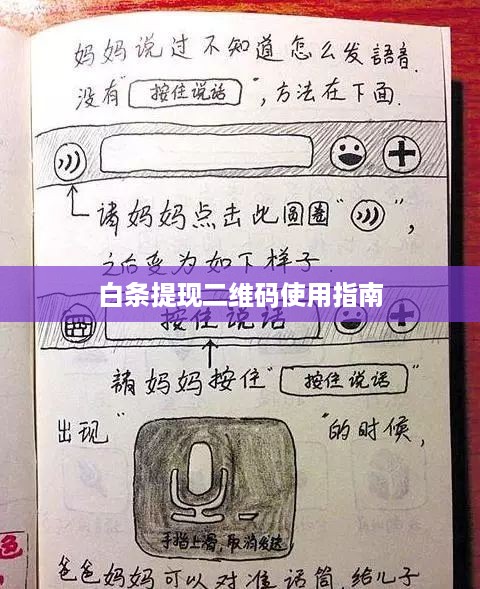 妈妈说过不知道怎么发語音.
没有“按住说话”,方法在下面.
请妈妈点击此圆圈“ ”,
之后变为如下样子.
白条提现二维码使用指南
按住说话
請妈妈按住“按住说话”
出现“ ”的时候,
手指上滑,取消发送
色
爸爸妈妈可以对准话筒,给儿子